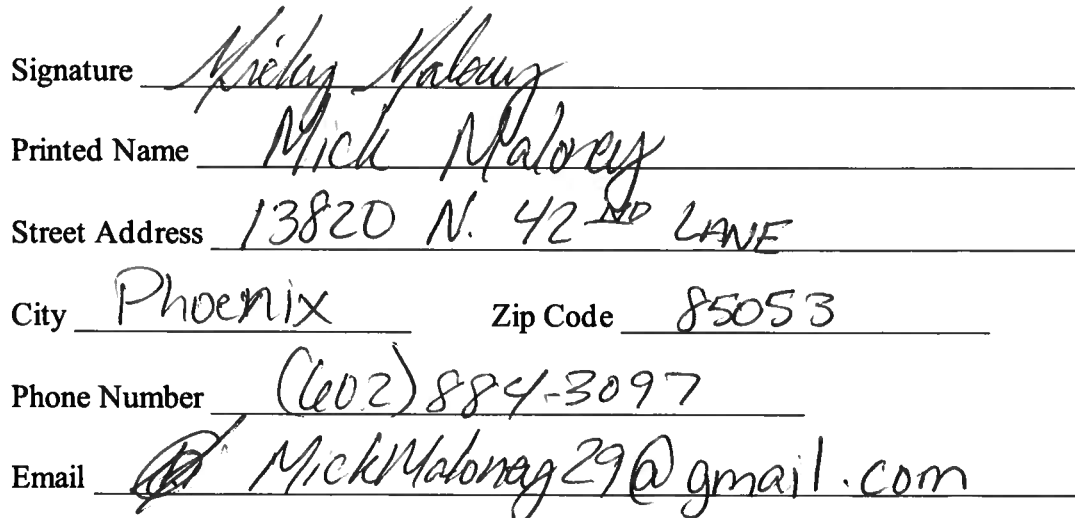 Signature Micky Maloney
Printed Name Mick Maloney
Street Address 13820 N. 42ND LANE
City Phoenix Zip Code 85053
Phone Number (602) 884-3097
Email MickMaloney29@gmail.com